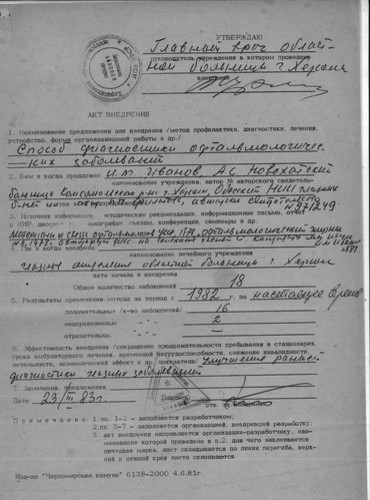 УТВЕРЖДАЮ
Главный врач облас-
руководитель учреждения в котором проведено
ной больницы г. Херсона
АКТ ВНЕДРЕНИЯ
1. Наименование предложения для внедрения /метод профилактики, диагностики, лечения,
устройство, форма организационной работы и др./
Способ диагностики офтальмологичес-
ких заболеваний
2. Кем и когда предложен И.М. Иванов, А.С. Новохатский
наименование учреждения, автор № авторского свидетельства
больница Комсомольская р-на г. Херсон, Одесский НИИ глазных
авторское свидетельство
3. Источник информации методические рекомендации, информационное письмо, отчет
о НИР, диссертация, монография съезды, конференции, семинары и др.
офтальмологический журнал
4. Где и когда внедрен
наименование лечебного учреждения
глазное отделение областной больницы г. Херсон
дата начала внедрения
Общее количество наблюдений 18
5. Результаты применения метода за период с 1982 г. по настоящее время
положительные /к-во наблюдений/ 16
неопределенные 2
отрицательные —
6. Эффективность внедрения /сокращение продолжительности пребывания в стационаре,
срока амбулаторного лечения, временной нетрудоспособности, снижение инвалидности,
летальности, экономический эффект и др. показатели/ Улучшения ранней
диагностики глазных заболеваний
7. Замечания, предложения
Дата 23/III 83 г. Подпись
Примечание: 1. пп. 1-2 - заполняется разработчиком;
2. пп. 3-7 - заполняется организацией, внедрившей разработку;
3. акт внедрения направляется организации-разработчику, наи-
менование которой приведено в п.2, для чего наклеивается
почтовая марка, лист складывается по линиям перегиба, верх-
ний и нижний края листа склеиваются.
Изд-во "Чорноморська комуна" 6138-2000 4.6.81г.